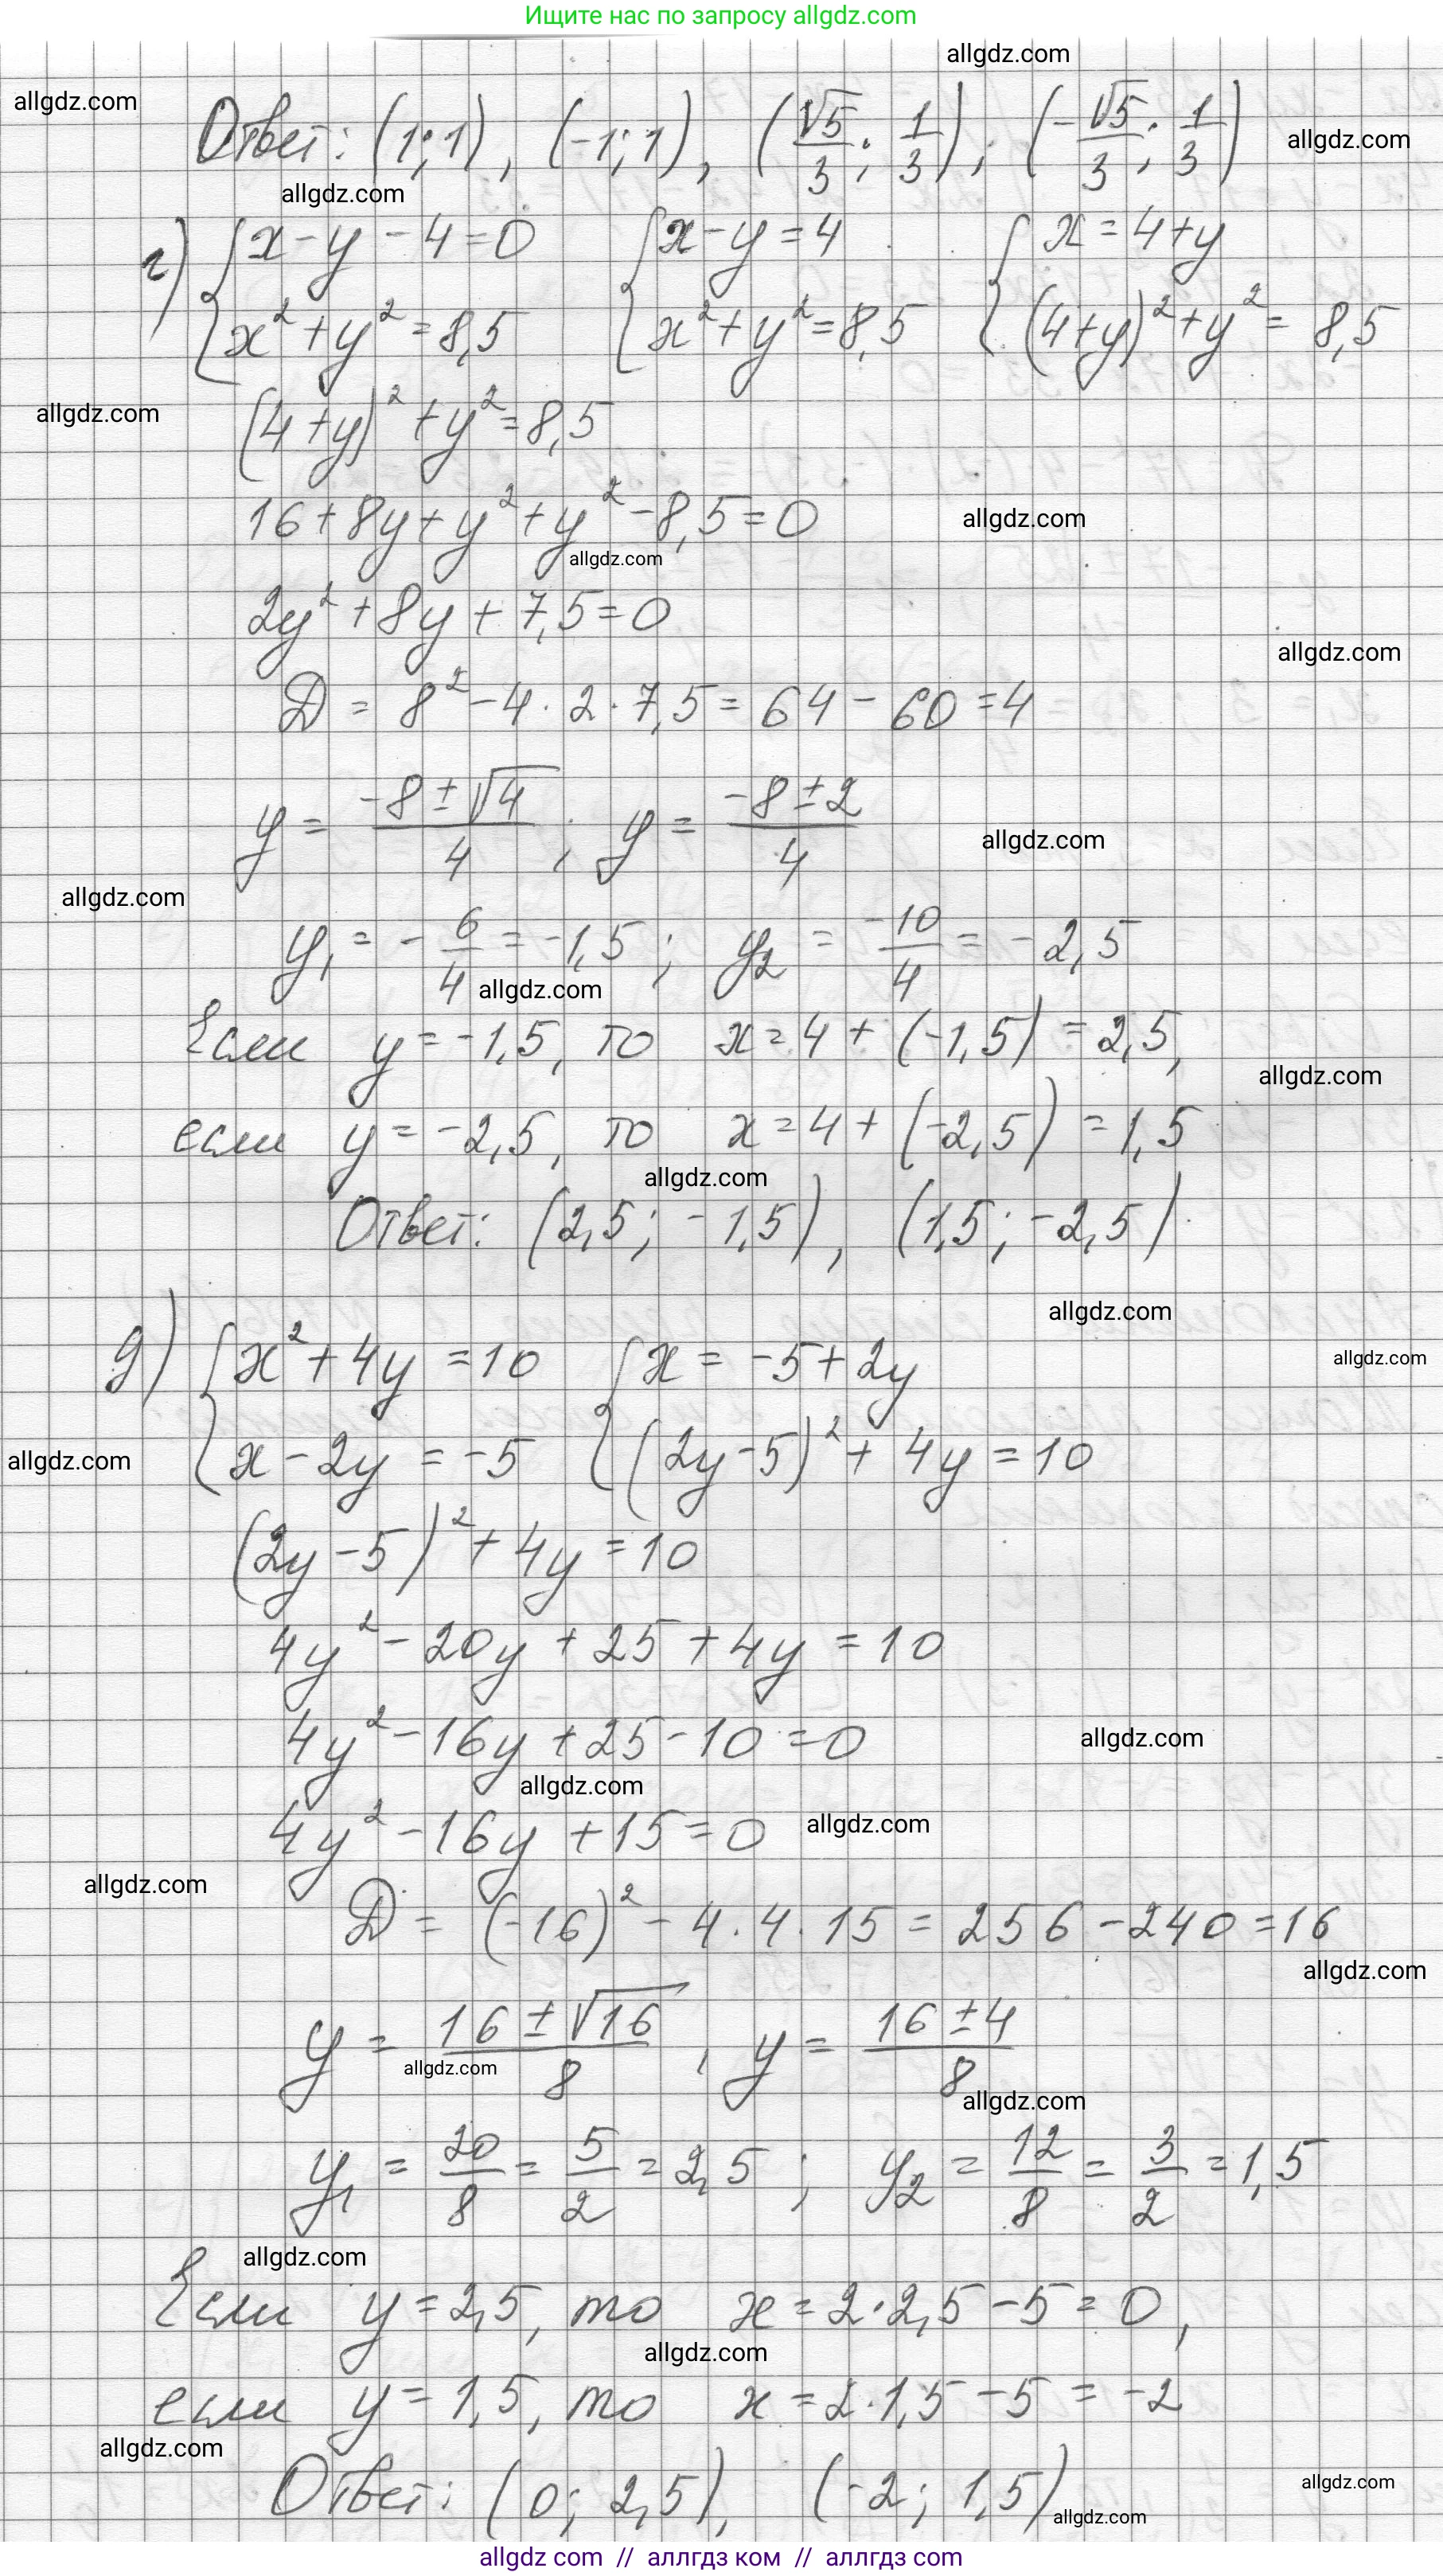 Ищите нас по запросу allgdz.com
allgdz.com
allgdz.com
Ответ: (1; 1), (-1; 1), (√5/3; 1/3); (-√5/3; 1/3)
allgdz.com
allgdz.com
г) { x - y - 4 = 0 { x - y = 4 { x = 4 + y
x² + y² = 8,5 x² + y² = 8,5 (4+y)² + y² = 8,5
allgdz.com
(4+y)² + y² = 8,5
16 + 8y + y² + y² - 8,5 = 0
allgdz.com
allgdz.com
2y² + 8y + 7,5 = 0
allgdz.com
D = 8² - 4 · 2 · 7,5 = 64 - 60 = 4
y = (-8 ± √4)/4 ; y = (-8 ± 2)/4
allgdz.com
allgdz.com
y₁ = -6/4 = -1,5 ; y₂ = -10/4 = -2,5
allgdz.com
Если y = -1,5, то x = 4 + (-1,5) = 2,5,
allgdz.com
если y = -2,5, то x = 4 + (-2,5) = 1,5
allgdz.com
Ответ: (2,5; -1,5), (1,5; -2,5)
allgdz.com
allgdz.com
д) { x² + 4y = 10 { x = -5 + 2y
x - 2y = -5 (2y - 5)² + 4y = 10
allgdz.com
(2y - 5)² + 4y = 10
4y² - 20y + 25 + 4y = 10
4y² - 16y + 25 - 10 = 0
allgdz.com
allgdz.com
4y² - 16y + 15 = 0
allgdz.com
allgdz.com
D = (-16)² - 4 · 4 · 15 = 256 - 240 = 16
allgdz.com
y = (16 ± √16)/8 , y = (16 ± 4)/8
allgdz.com
allgdz.com
y₁ = 20/8 = 5/2 = 2,5 ; y₂ = 12/8 = 3/2 = 1,5
allgdz.com
Если y = 2,5, то x = 2 · 2,5 - 5 = 0,
allgdz.com
если y = 1,5, то x = 2 · 1,5 - 5 = -2
allgdz.com
Ответ: (0; 2,5), (-2; 1,5)
allgdz.com
allgdz.com
allgdz com // аллгдз ком // аллгдз com